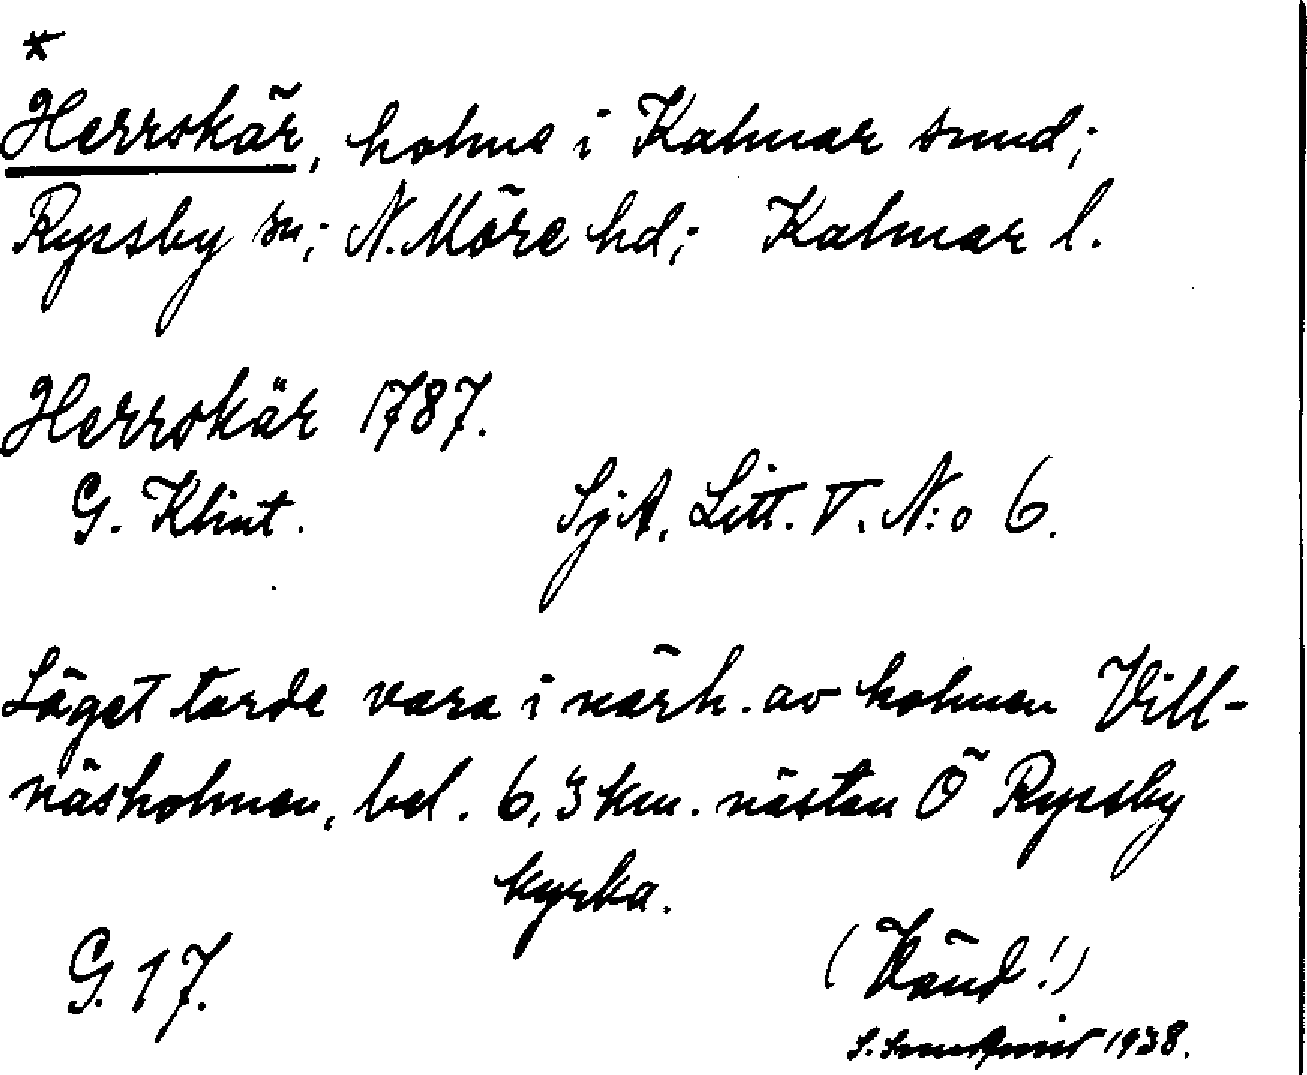 *
Herrskär, holme i Kalmar sund;
Ryssby sn; N. Möre hd; Kalmar l.
Herrskär 1787.
G. Klint. SjA. Litt. V. N:o 6.
Läget torde vara i närh. av holmen Vill-
näsholmen, bel. 6,3 km. nästan Ö Ryssby
kyrka.
G. 17. (Känd!)
S. 1938.